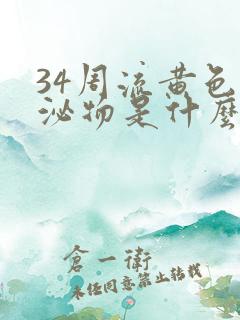 34周流黄色
泌物是什麽
倉一衛
未经同意禁止转载